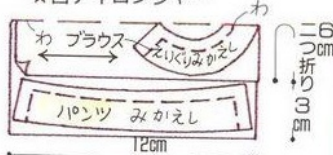 わ
わ
ブラウス
えりぐりみかえし
パンツ みかえし
12cm
6cm
二つ折り
3cm